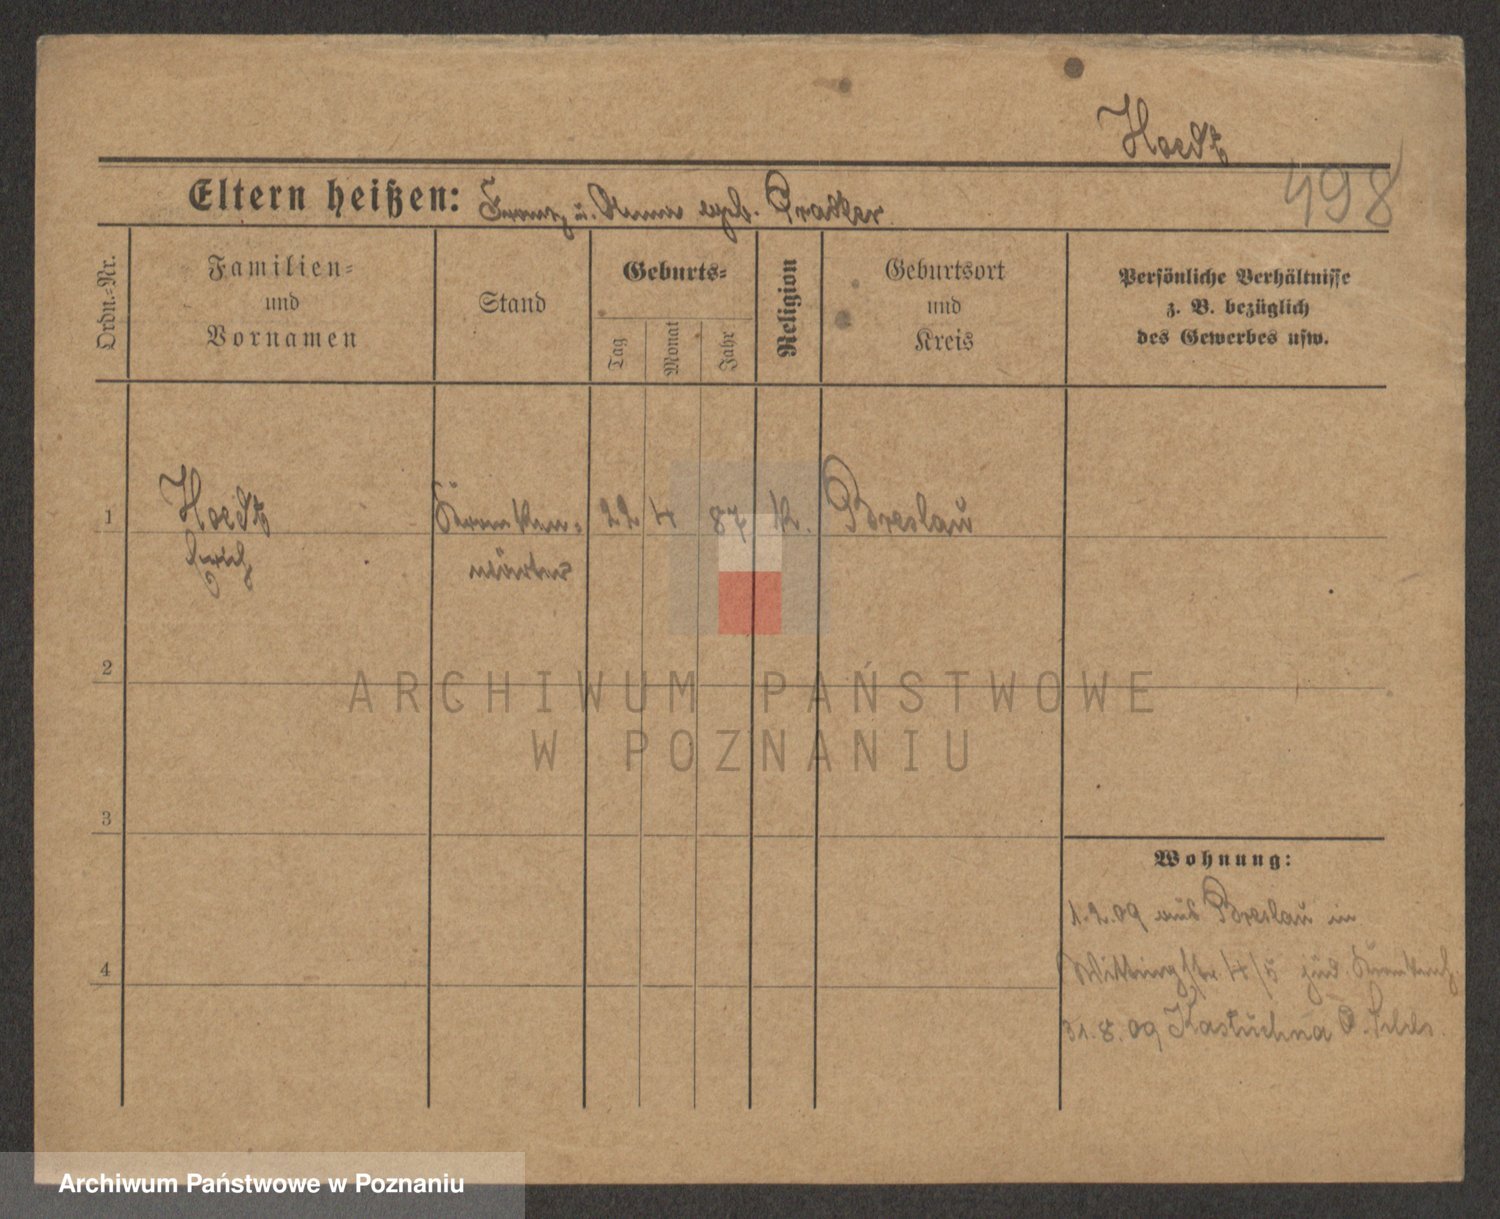 Hoedt
498
Eltern heißen: Franz u. Anna geb. Pratker
Ordn.-Nr.
Familien-
und
Vornamen
Stand
Geburts-
Tag
Monat
Jahr
Religion
Geburtsort
und
Kreis
Persönliche Verhältnisse
z. B. bezüglich
des Gewerbes usw.
1
Hoedt
Erich
Kranken-
wärter
22 4 87 k. Breslau
2
3
4
Wohnung:
1.2.09 aus Breslau in
Wittingstr. 4/5 jüd. Krankenh.
31.8.09 Kastuchna O. Schls.
ARCHIWUM PAŃSTWOWE
W POZNANIU
Archiwum Państwowe w Poznaniu